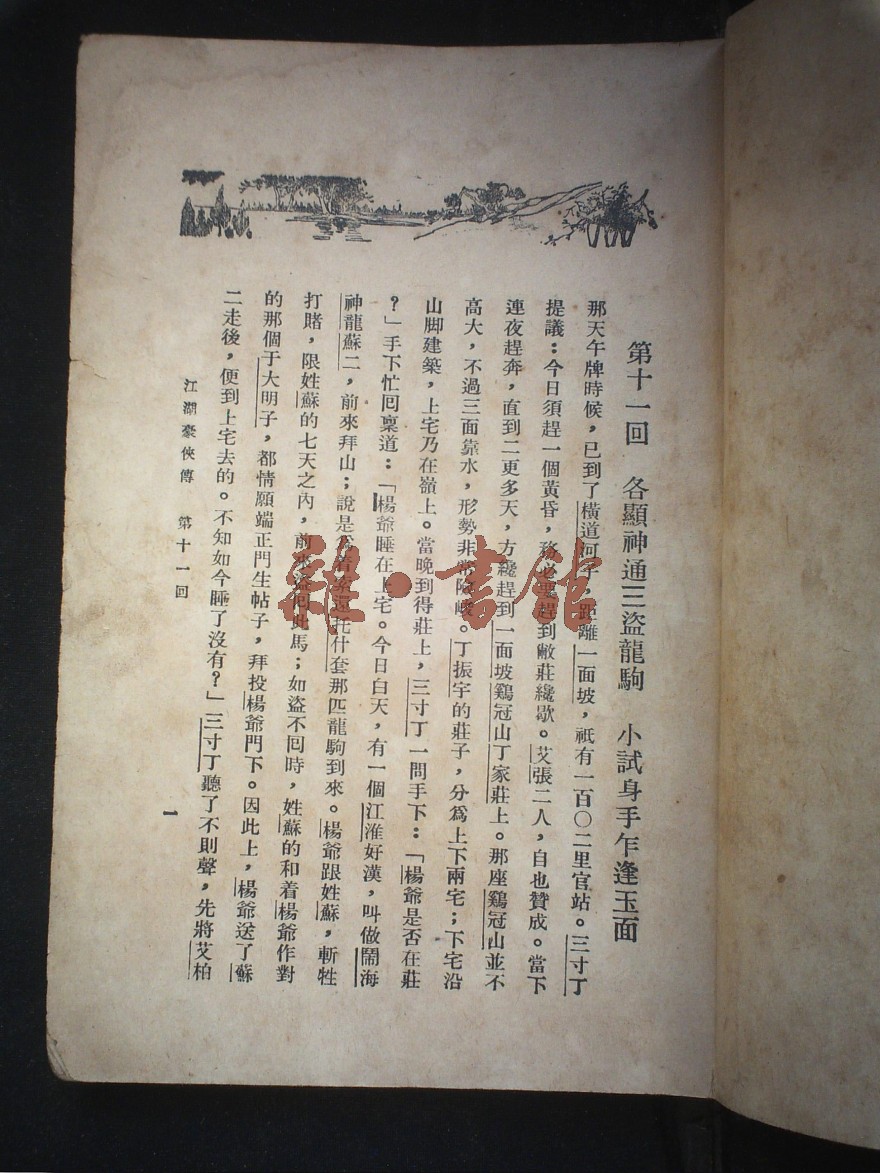 第十一回　各顯神通三盜龍駒　小試身手乍逢玉面
那天午牌時候，已到了橫道河子，距離一面坡，祇有一百〇二里官站。三寸丁
提議：今日須趕一個黃昏，務必要趕到敝莊纔歇。艾張二人，自也贊成。當下
連夜趕奔，直到二更多天，方纔趕到一面坡鷄冠山丁家莊上。那座鷄冠山並不
高大，不過三面靠水，形勢非常險峻。丁振宇的莊子，分爲上下兩宅；下宅沿
山脚建築，上宅乃在嶺上。當晚到得莊上，三寸丁一問手下：「楊爺是否在莊
？」手下忙囘稟道：「楊爺睡在上宅。今日白天，有一個江淮好漢，叫做鬧海
神龍蘇二，前來拜山；說是爲着索還托什套那匹龍駒到來。楊爺跟姓蘇，斬牲
打賭，限姓蘇的七天之內，前來盜囘此馬；如盜不囘時，姓蘇的和着楊爺作對
的那個于大明子，都情願端正門生帖子，拜投楊爺門下。因此上，楊爺送了蘇
二走後，便到上宅去的。不知如今睡了沒有？」三寸丁聽了不則聲，先將艾柏
江湖豪俠傳　第十一回
一
雜·書館